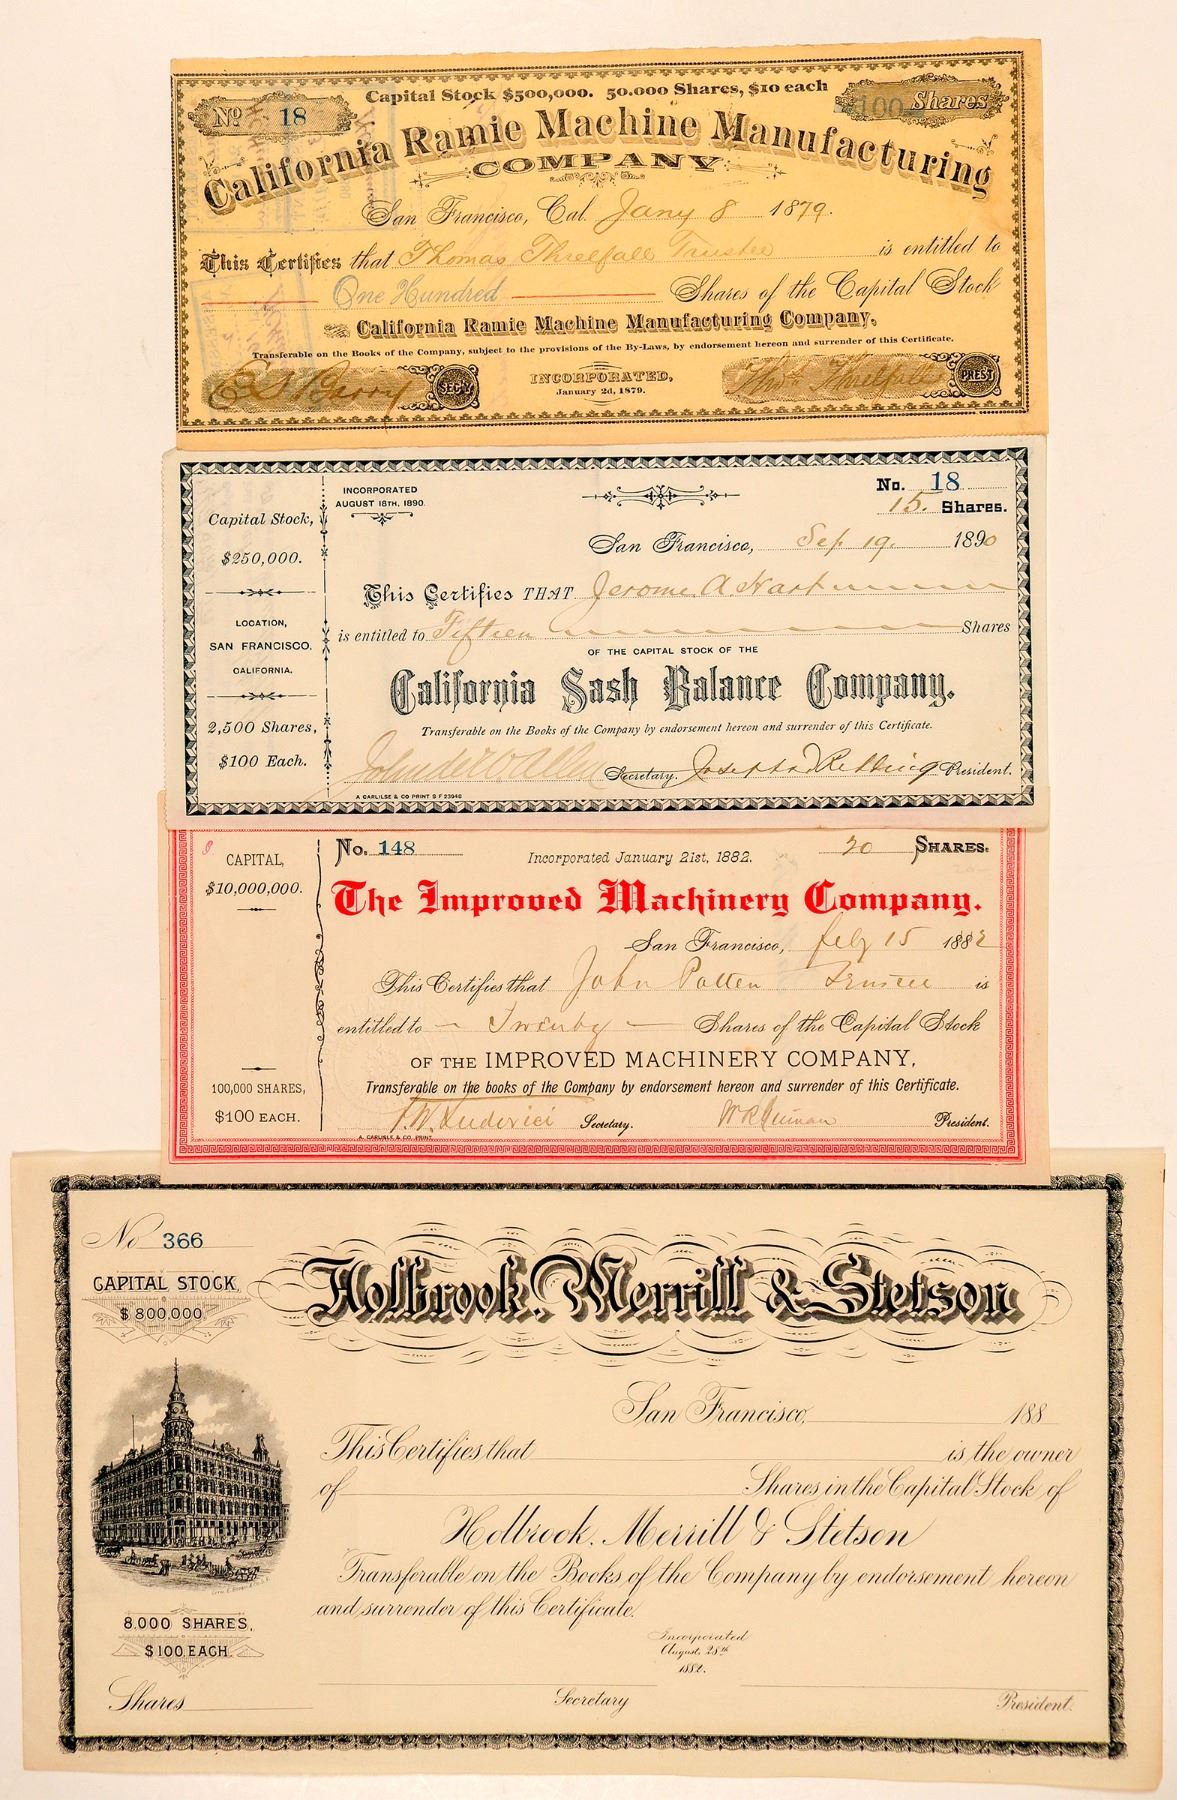 Capital Stock $500,000. 50.000 Shares, $10 each
No 18
100 Shares
California Ramie Machine Manufacturing
COMPANY
San Francisco, Cal. Jany 8 1879.
This Certifies that Thomas Threlfall Trustee is entitled to
One Hundred Shares of the Capital Stock
California Ramie Machine Manufacturing Company.
Transferable on the Books of the Company, subject to the provisions of the By-Laws, by endorsement hereon and surrender of this Certificate.
Barry SEC'Y
INCORPORATED,
January 2d, 1879.
Thos Threlfall PREST
INCORPORATED
AUGUST 18TH, 1890.
No. 18
15. Shares.
Capital Stock,
$250,000.
LOCATION,
SAN FRANCISCO,
CALIFORNIA.
2,500 Shares,
$100 Each.
San Francisco, Sep. 19. 1890
This Certifies THAT Jerome A. Hart
is entitled to Fifteen Shares
OF THE CAPITAL STOCK OF THE
California Sash Balance Company.
Transferable on the Books of the Company by endorsement hereon and surrender of this Certificate.
Secretary. Joseph President.
A CARLISLE & CO PRINT S F 23948
CAPITAL,
$10,000,000.
100,000 SHARES,
$100 EACH.
No. 148
Incorporated January 21st, 1882.
20 SHARES.
The Improved Machinery Company.
San Francisco, Feby 15 1882
This Certifies that John Patten Trustee is
entitled to Twenty Shares of the Capital Stock
OF THE IMPROVED MACHINERY COMPANY,
Transferable on the books of the Company by endorsement hereon and surrender of this Certificate.
Ludovici Secretary. President.
A. CARLISLE & CO. PRINT.
No 366
CAPITAL STOCK,
$800,000.
8,000 SHARES,
$100 EACH.
Holbrook, Merrill & Stetson
San Francisco, 188
This Certifies that is the owner
of Shares in the Capital Stock of
Holbrook, Merrill & Stetson
Transferable on the Books of the Company by endorsement hereon
and surrender of this Certificate.
Incorporated
August, 28th
1882.
Shares
Secretary
President.